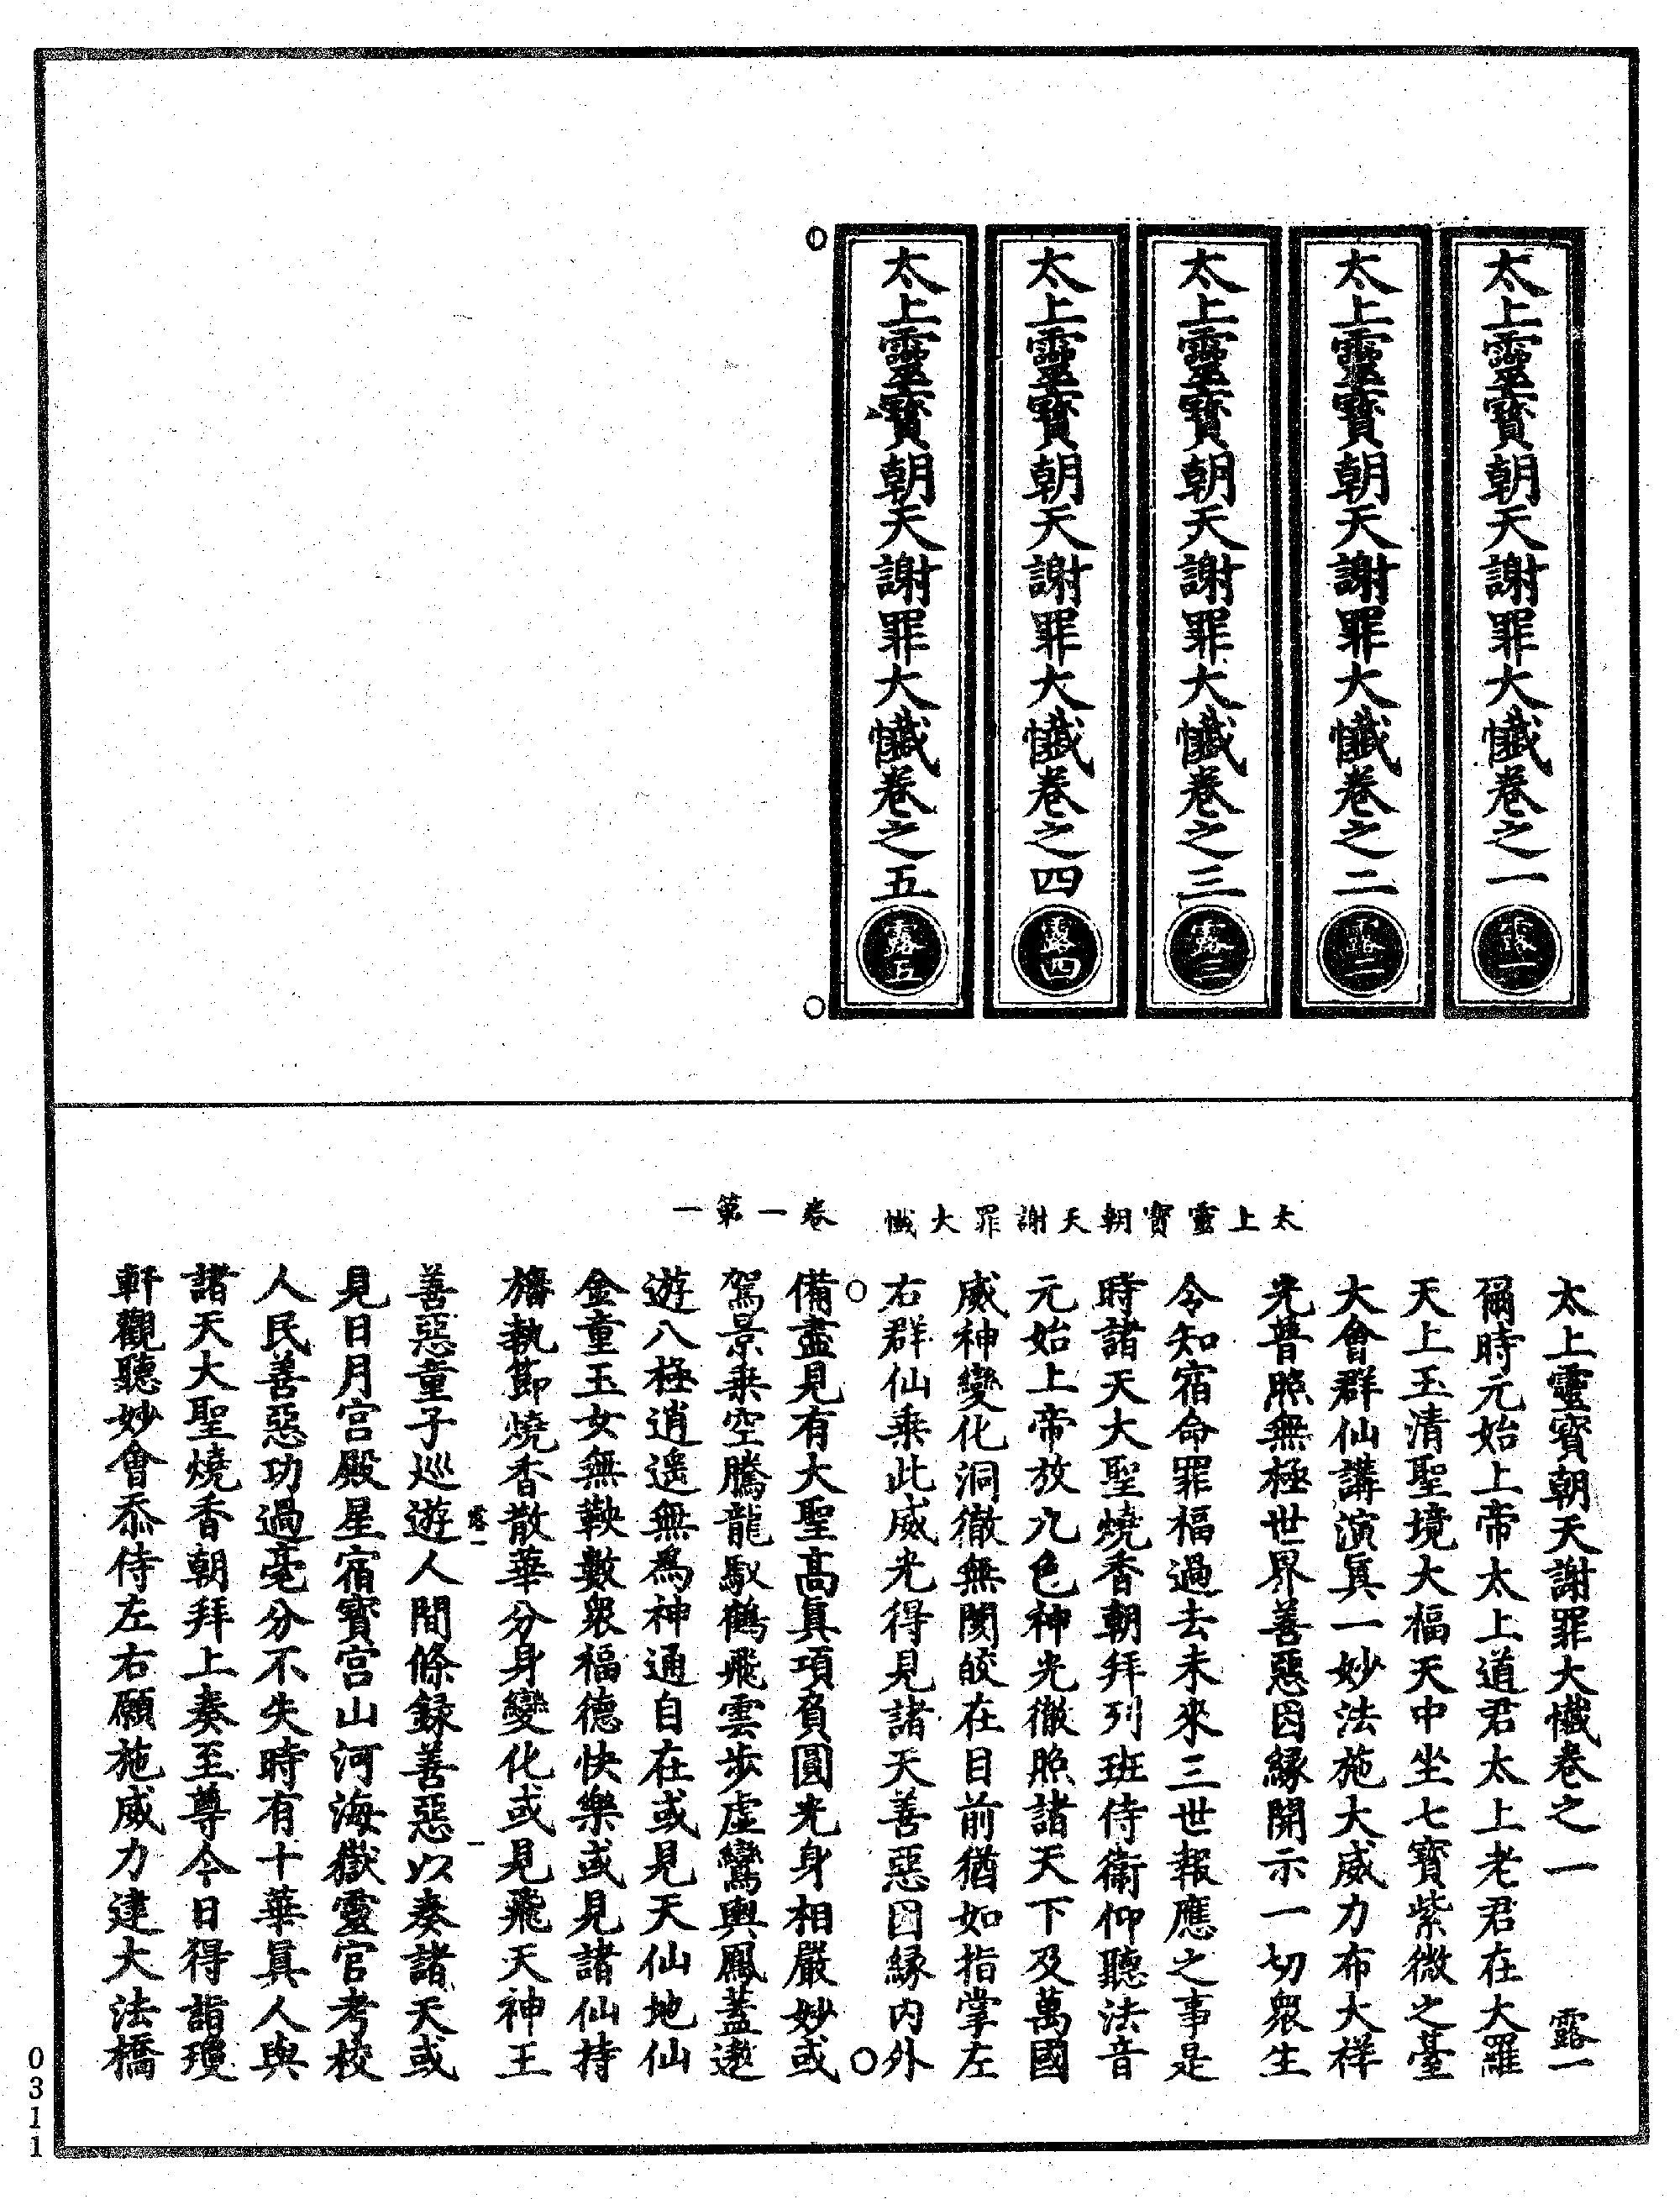 太上靈寶朝天謝罪大懺卷之一 露一
太上靈寶朝天謝罪大懺卷之二 露二
太上靈寶朝天謝罪大懺卷之三 露三
太上靈寶朝天謝罪大懺卷之四 露四
太上靈寶朝天謝罪大懺卷之五 露五
太上靈寶朝天謝罪大懺 卷一第一
太上靈寶朝天謝罪大懺卷之一 露一
爾時元始上帝太上道君太上老君在大羅
天上玉清聖境大福天中坐七寶紫微之臺
大會群仙講演眞一妙法施大威力布大祥
光普照無極世界善惡因緣開示一切衆生
令知宿命罪福過去未來三世報應之事是
時諸天大聖燒香朝拜列班侍衛仰聽法音
元始上帝放九色神光徹照諸天下及萬國
威神變化洞徹無閡皎在目前猶如指掌左
右群仙乘此威光得見諸天善惡因緣內外
備盡見有大聖高眞項負圓光身相嚴妙或
駕景乘空騰龍馭鶴飛雲步虛鸞輿鳳蓋遨
遊八極逍遙無爲神通自在或見天仙地仙
金童玉女無鞅數衆福德快樂或見諸仙持
旛執節燒香散華分身變化或見飛天神王
露一 一
善惡童子巡遊人間條錄善惡以奏諸天或
見日月宮殿星宿寶宮山河海嶽靈官考校
人民善惡功過毫分不失時有十華眞人與
諸天大聖燒香朝拜上奏至尊今日得詣瓊
軒觀聽妙會忝侍左右願施威力建大法橋
0311